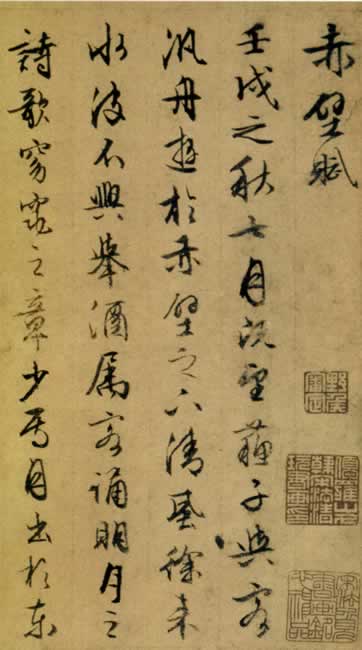 赤壁賦
壬戌之秋七月既望蘇子與客
汎舟遊於赤壁之下清風徐來
水波不興舉酒属客誦明月之
詩歌窈窕之章少焉月出於東